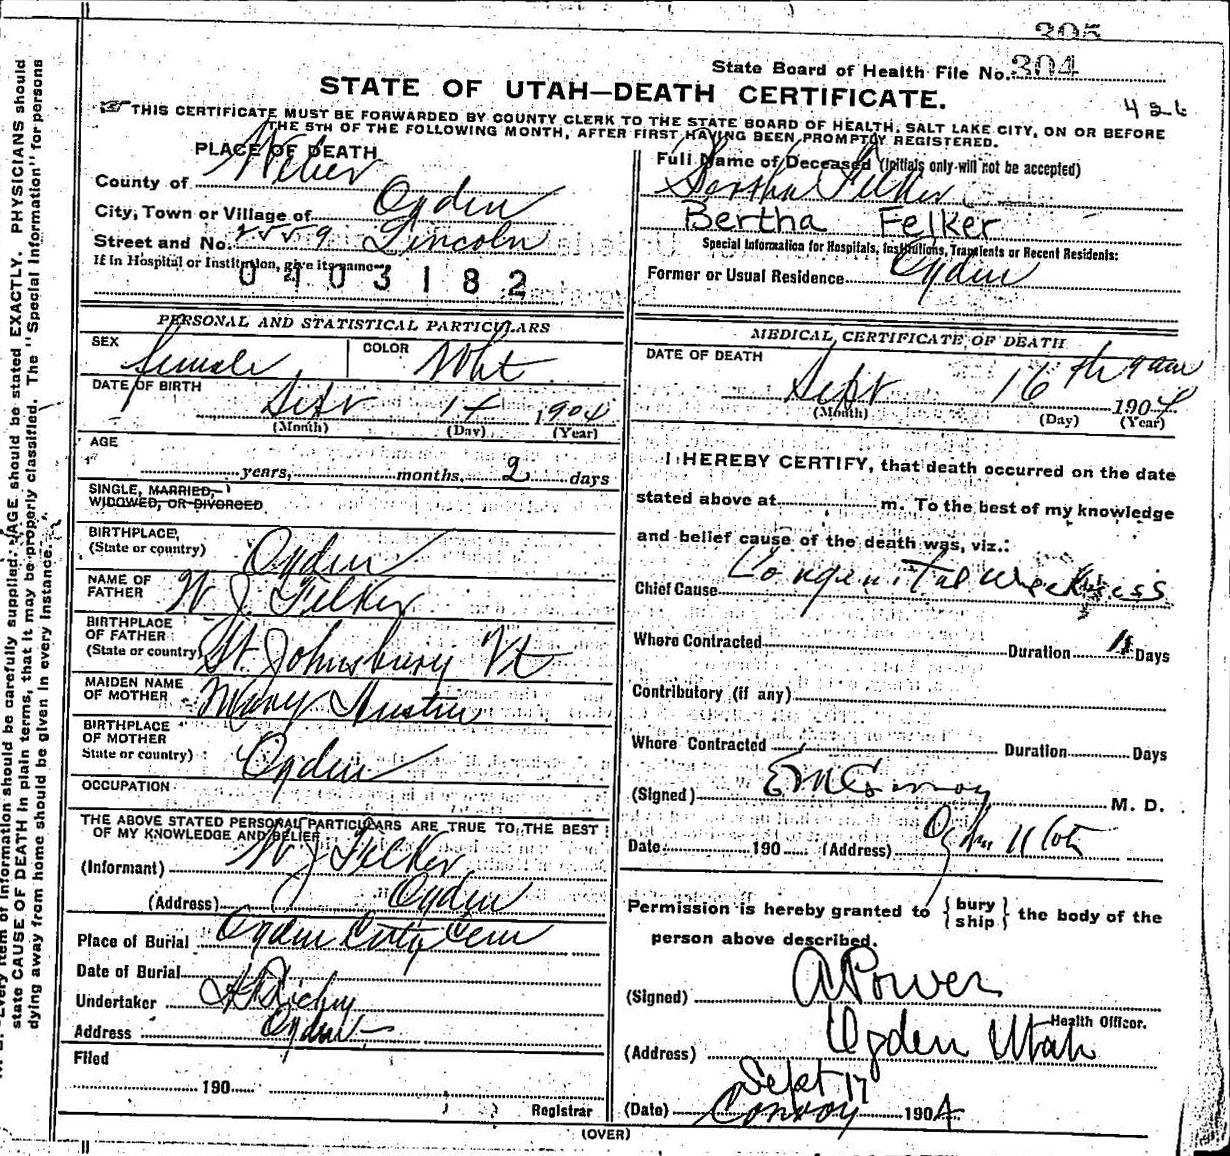 305
State Board of Health File No. 304
STATE OF UTAH—DEATH CERTIFICATE.
426
THIS CERTIFICATE MUST BE FORWARDED BY COUNTY CLERK TO THE STATE BOARD OF HEALTH, SALT LAKE CITY, ON OR BEFORE
THE 5TH OF THE FOLLOWING MONTH, AFTER FIRST HAVING BEEN PROMPTLY REGISTERED.
PLACE OF DEATH
County of Weber
City, Town or Village of Ogden
Street and No. 2559 Lincoln
If in Hospital or Institution, give its name
0403182
Full Name of Deceased (Initials only will not be accepted)
Bertha Felker
Bertha Felker
Special Information for Hospitals, Institutions, Transients or Recent Residents:
Former or Usual Residence Ogden
PERSONAL AND STATISTICAL PARTICULARS
SEX female COLOR Wht
DATE OF BIRTH
Sept 14 1904
(Month) (Day) (Year)
AGE
years, months, 2 days
SINGLE, MARRIED,
WIDOWED, OR DIVORCED
BIRTHPLACE,
(State or country) Ogden
NAME OF
FATHER W J Felker
BIRTHPLACE
OF FATHER
(State or country) St. Johnsbury Vt
MAIDEN NAME
OF MOTHER Mary Austin
BIRTHPLACE
OF MOTHER
State or country) Ogden
OCCUPATION
THE ABOVE STATED PERSONAL PARTICULARS ARE TRUE TO THE BEST
OF MY KNOWLEDGE AND BELIEF
(Informant) W J Felker
(Address) Ogden
Place of Burial Ogden City Cem
Date of Burial
Undertaker Richey
Address Ogden
Filed
190
Registrar
MEDICAL CERTIFICATE OF DEATH
DATE OF DEATH
Sept 16th 9 am 1904
(Month) (Day) (Year)
I HEREBY CERTIFY, that death occurred on the date
stated above at m. To the best of my knowledge
and belief cause of the death was, viz.:
Chief Cause Congenital weakness
Where Contracted Duration Days
Contributory (if any)
Where Contracted Duration Days
(Signed) E M Conroy M. D.
Date 190 (Address) Ogden Utah
Permission is hereby granted to { bury ship } the body of the
person above described.
(Signed) A Power
Health Officer.
(Address) Ogden Utah
Sept 17
(Date) Conroy 1904
(OVER)
Every item of information should be carefully supplied. AGE should be stated EXACTLY. PHYSICIANS should
state CAUSE OF DEATH in plain terms, that it may be properly classified. The "Special Information" for persons
dying away from home should be given in every instance.